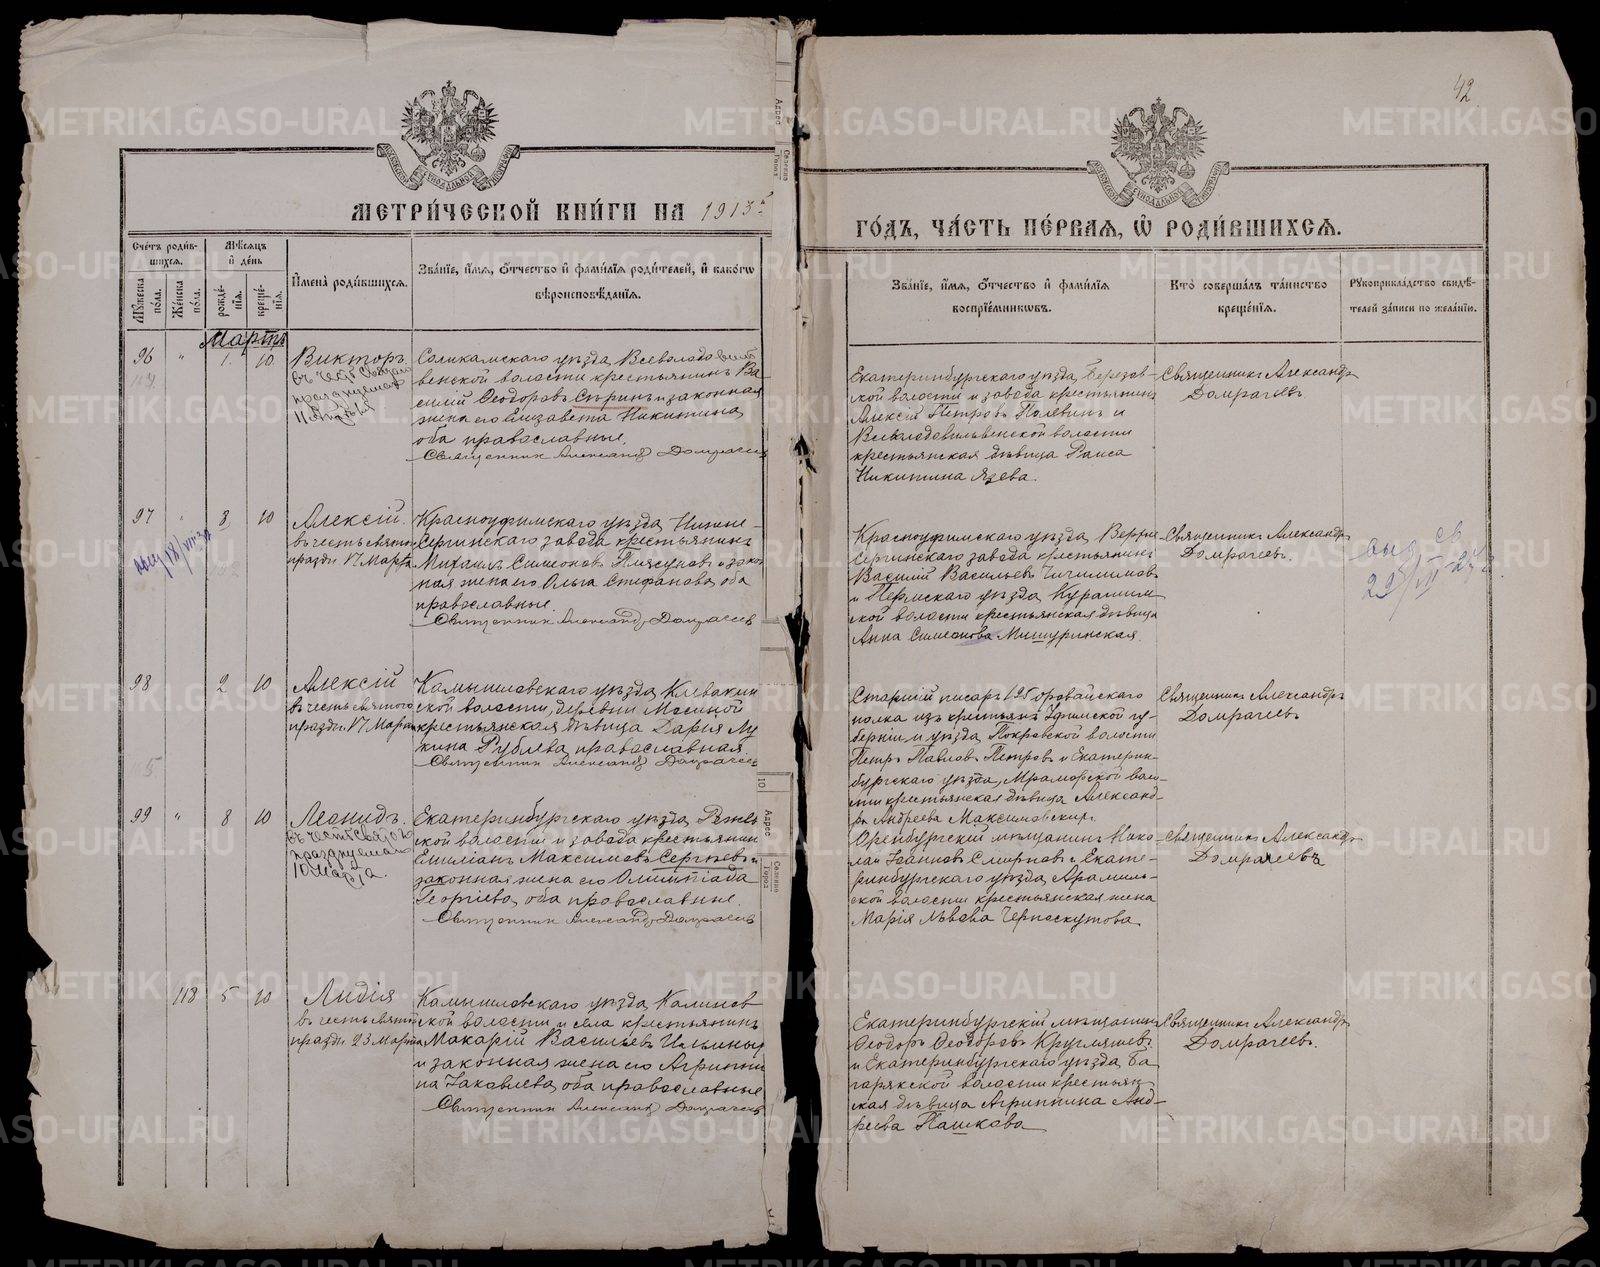 42
МЕТРИ́ЧЕСКОЙ КНИ́ГИ НА 1913
ГО́ДЪ, ЧА́СТЬ ПЕ́РВАЯ, Ѡ҆ РОДИ́ВШИХСЯ.
Сче́тъ роди́в-
шихся.
Мѣ́сяцъ
и҆ де́нь
Мꙋ́жеска
по́ла.
Же́нска
по́ла.
рожде́-
нїя.
креще́-
нїя.
И҆мена̀ роди́вшихся.
Зва́нїе, и҆́мя, ѻ҆́тчество и҆ фами́лїя роди́телей, и҆ како́гѡ
вѣроисповѣ́данїя.
Зва́нїе, и҆́мя, ѻ҆́тчество и҆ фами́лїя
воспрїе́мниковъ.
Кто̀ соверша́лъ та́инство
креще́нїя.
Рꙋкоприкла́дство свидѣ́-
телей за́писи по жела́нїю.
Мартъ
96 " 1. 10. Викторъ
въ честь святаго
празднуемаго
Соликамскаго уѣзда, Всеволодо
венской волости крестьянинъ Ва-
силий Ѳеодоровъ Сѣринъ и законная
жена его Елизавета Никитина,
оба православные.
Священникъ Александр Домрачевъ
Екатеринбургскаго уѣзда, Березов-
ской волости и завода крестьянинъ
Алексій Петровъ Полевинъ и
Всеволодовильвенской волости
крестьянская дѣвица Раиса
Никитина Язева.
Священникъ Александръ
Домрачевъ
97 " 8 10 Алексій.
въ честь святаго
праздн. 17 Марта
Красноуфимскаго уѣзда, Нижне-
Сергинскаго завода крестьянинъ
Михаилъ Симеоновъ и закон
ная жена его Ольга Стефанова, оба
православные.
Священникъ Александр Домрачевъ
Красноуфимскаго уѣзда, Верхне
Сергинскаго завода крестьянинъ
Василій Васильевъ
и Пермскаго уѣзда, Курашим
ской волости крестьянская дѣвица
Анна Симеонова Мишуринская.
Священникъ Александръ
Домрачевъ.
98 2 10 Алексій
въ честь святого
праздн. 17 Марта
Камышловскаго уѣзда, Клевакин
ской волости, деревни Мосиной
крестьянская дѣвица Дарія Лу
кина Рублева, православная.
Священникъ Александр Домрачевъ
Старшій писарь 195 Оровайскаго
полка изъ крестьянъ Уфимской гу-
берніи и уѣзда, Покровской волости
Петръ Павловъ Петровъ и Екатерин-
бургскаго уѣзда, Мраморской воло-
сти крестьянская дѣвица Александ-
ра Андреева Максимовских.
Священникъ Александръ
Домрачевъ
99 " 8 10 Леонидъ.
въ честь святого
празднуемаго
10 марта.
Екатеринбургскаго уѣзда,
ской волости и завода крестьянин
Емиліанъ Максимовъ Сергѣевъ и
законная жена его Олимпіада
Георгіева, оба православные.
Священникъ Александр Домрачевъ
Оренбургскій мѣщанинъ Нико-
лай Іоанновъ Смирновъ и Екате-
ринбургскаго уѣзда, Арамиль-
ской волости крестьянская жена
Марія Львова Черноскутова.
Священникъ Александръ
Домрачевъ
118 5 10 Лидія
въ честь святой
праздн. 23 Марта
Камышловскаго уѣзда, Калинов
ской волости и села крестьянинъ
Макарій Васильевъ Ильиныхъ
и законная жена его Агриппи
на Іаковлева, оба православные
Священникъ Александр Домрачевъ
Екатеринбургскій мѣщанинъ
Ѳеодоръ Ѳеодоровъ Кругляшевъ
и Екатеринбургскаго уѣзда, Ба
гарякской волости крестьян
ская дѣвица Агриппина Анд-
реева Пашкова
Священникъ Александръ
Домрачевъ.
METRIKI.GASO-URAL.RU